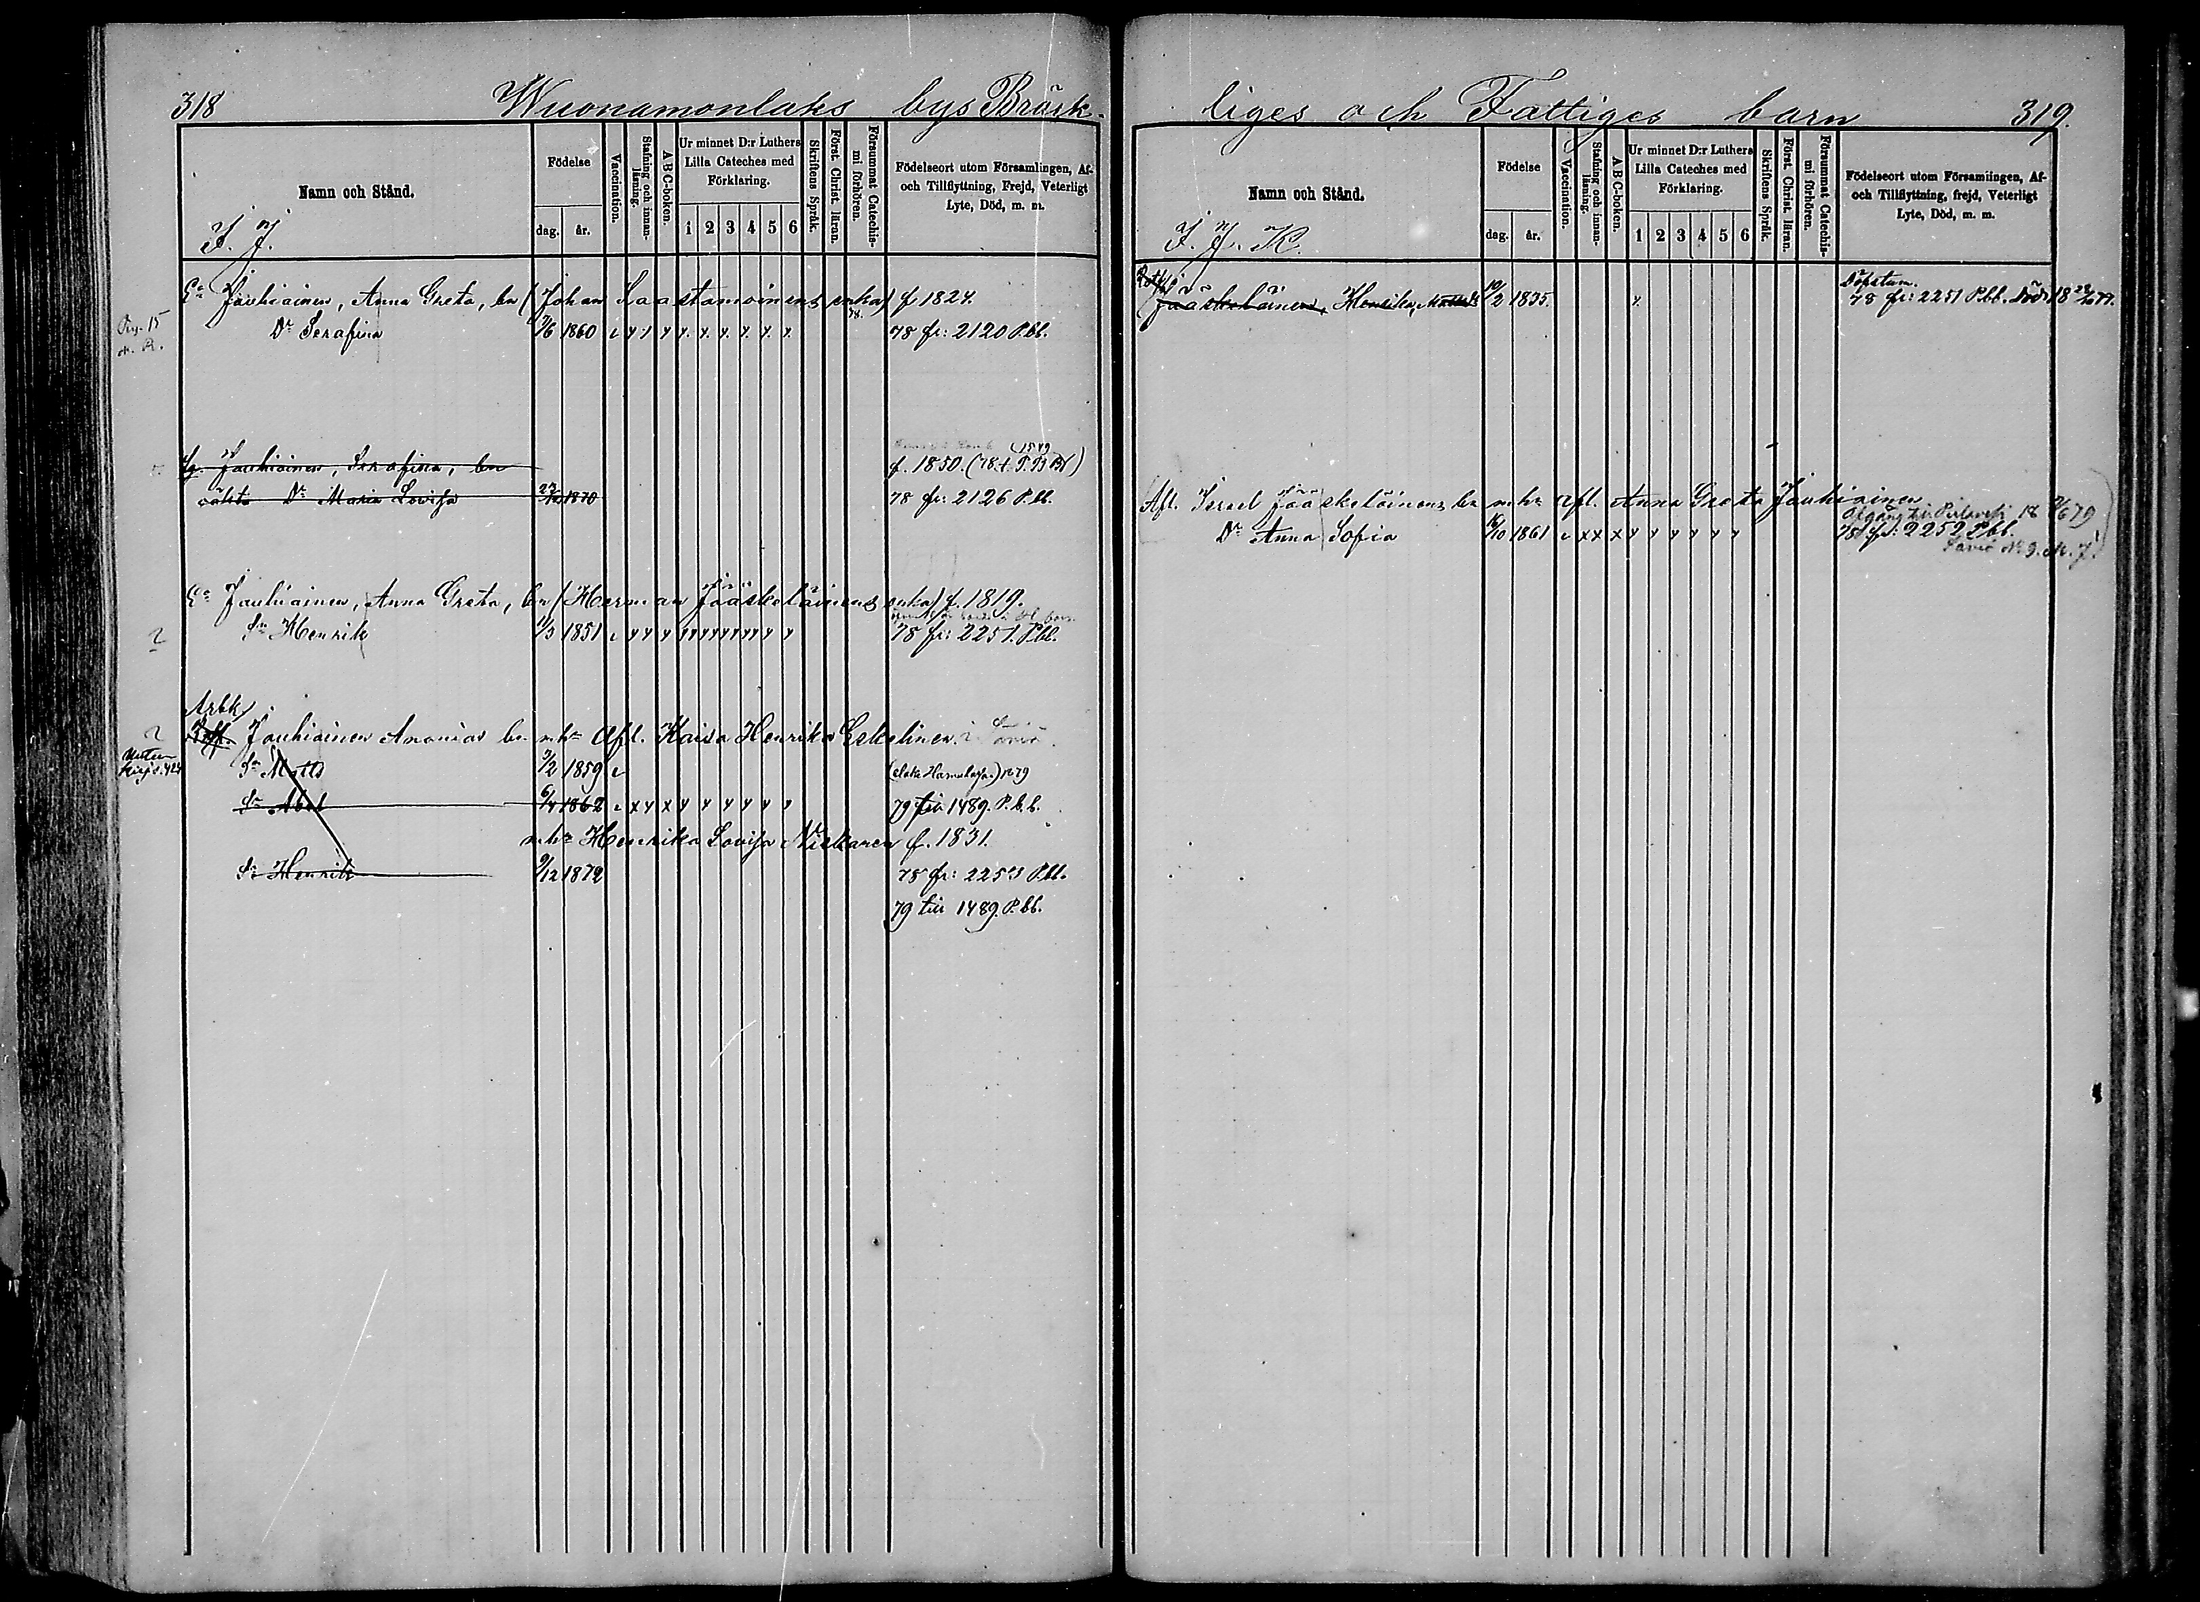 318 Wuonamonlaks bys Bräck-
Namn och Stånd.
I. J.
Födelse
dag. år.
Vaccination.
Stafning och innan-läsning.
ABC-boken.
Ur minnet D:r Luthers Lilla Cateches med Förklaring.
1 2 3 4 5 6
Skriftens Språk.
Först. Christ. läran.
Försummat Catechis-mi förhören.
Födelseort utom Församlingen, Af-
och Tillflyttning, Frejd, Veterligt
Lyte, Död, m. m.
Jauhiainen, Anna Greta, bn (Johan Laastamoinens enka) f 1824.
Dr Serafina 7/6 1860 78 fr: 2120 P.bb.
Jauhiainen, Serafina, bn f. 1850.
oäkta Dr Maria Lovisa 1870 78 fr: 2126 P.bb.
Jauhiainen, Anna Greta, bn (Herman Jääskeläinens enka) f. 1819.
Sn Henrik 1/3 1851 78 fr: 2251. P.bb.
Arbk
Jauhiainen Ananias bn m. hu Afl. Kaisa Henrika Eskelinen.
Sn Matts 7/2 1859 1879
Sn Abel 6/4 1862 79 till 1489. P.b.b.
m. hu Henrika Lovisa Niskanen f. 1831.
Sn Henrik 9/12 1872 78 fr: 2253 P.bb.
79 till 1489. P.bb.
liges och Fattiges barn 319.
Namn och Stånd.
I. J. K.
Födelse
dag. år.
Vaccination.
Stafning och innan-läsning.
ABC-boken.
Ur minnet D:r Luthers Lilla Cateches med Förklaring.
1 2 3 4 5 6
Skriftens Språk.
Först. Christ. läran.
Försummat Catechis-mi förhören.
Födelseort utom Församlingen, Af-
och Tillflyttning, frejd, Veterligt
Lyte, Död, m. m.
Döfstum.
Jääskeläinen, Henrika, 10/2 1835. 78 fr: 2251 P.bb.
Afl. Israel Jääskeläinens bn m. hu afl. Anna Greta Jauhiainen
Dr Anna Sofia 16/10 1861 78 fr: 2252 P.bb.